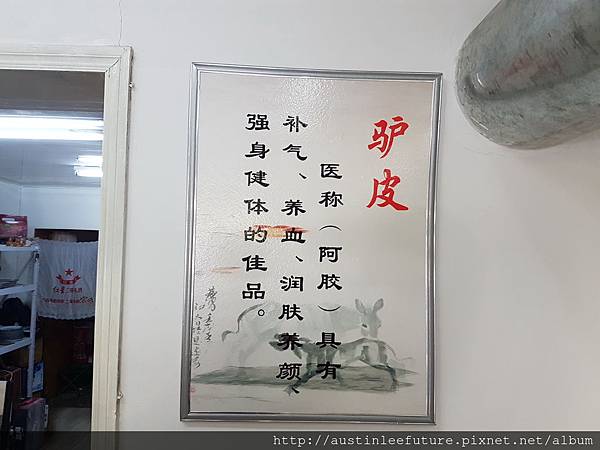 驴皮
医称（阿胶）具有
补气、养血、润肤养颜、
强身健体的佳品。
http://austinleefuture.pixnet.net/album